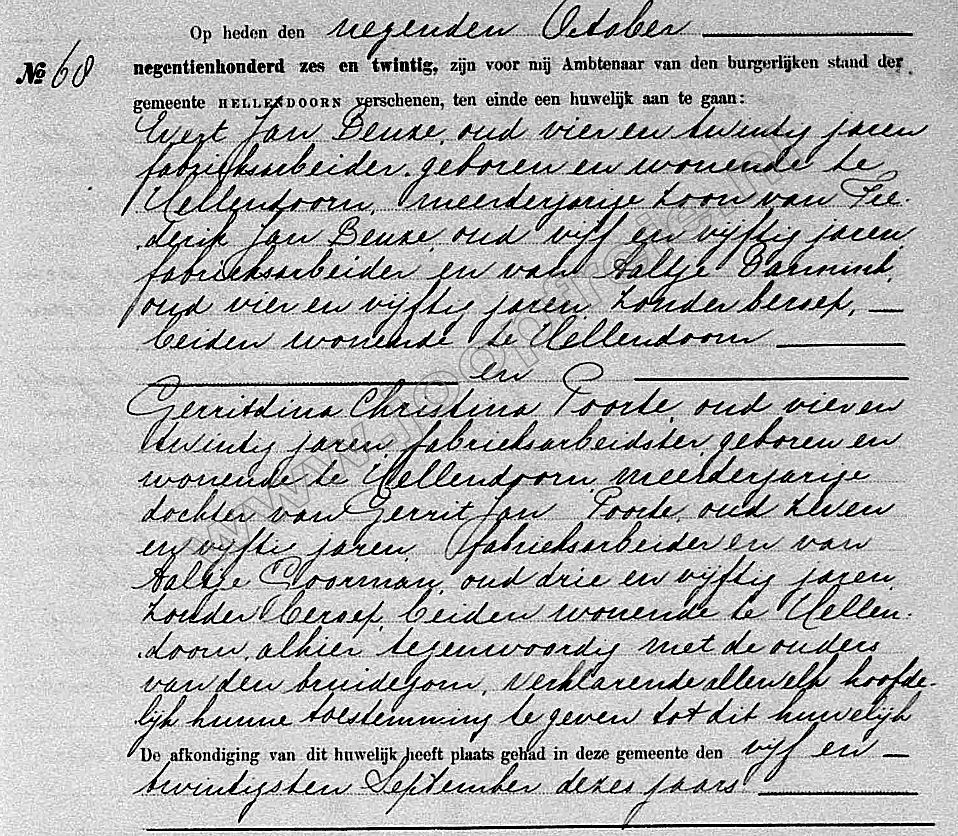 Op heden den negenden October
№ 68
negentienhonderd zes en twintig, zijn voor mij Ambtenaar van den burgerlijken stand der
gemeente HELLENDOORN verschenen, ten einde een huwelijk aan te gaan:
Evert Jan Benxe, oud vier en twintig jaren
fabrieksarbeider, geboren en wonende te
Hellendoorn, meerderjarige zoon van Fre-
derik Jan Benxe, oud vijf en vijftig jaren,
fabrieksarbeider en van Aaltje
oud vier en vijftig jaren, zonder beroep,
beiden wonende te Hellendoorn
en
Gerritdina Christina Poorte, oud vier en
twintig jaren, fabrieksarbeidster, geboren en
wonende te Hellendoorn, meerderjarige
dochter van Gerrit Jan Poorte, oud zeven
en vijftig jaren, fabrieksarbeider en van
Aaltje, oud drie en vijftig jaren,
zonder beroep, beiden wonende te Hellen-
doorn, alhier tegenwoordig met de ouders
van den bruidegom, verklarende allen elk hoofde-
lijk hunne toestemming te geven tot dit huwelijk
De afkondiging van dit huwelijk heeft plaats gehad in deze gemeente den vijf en
twintigsten September dezes jaars